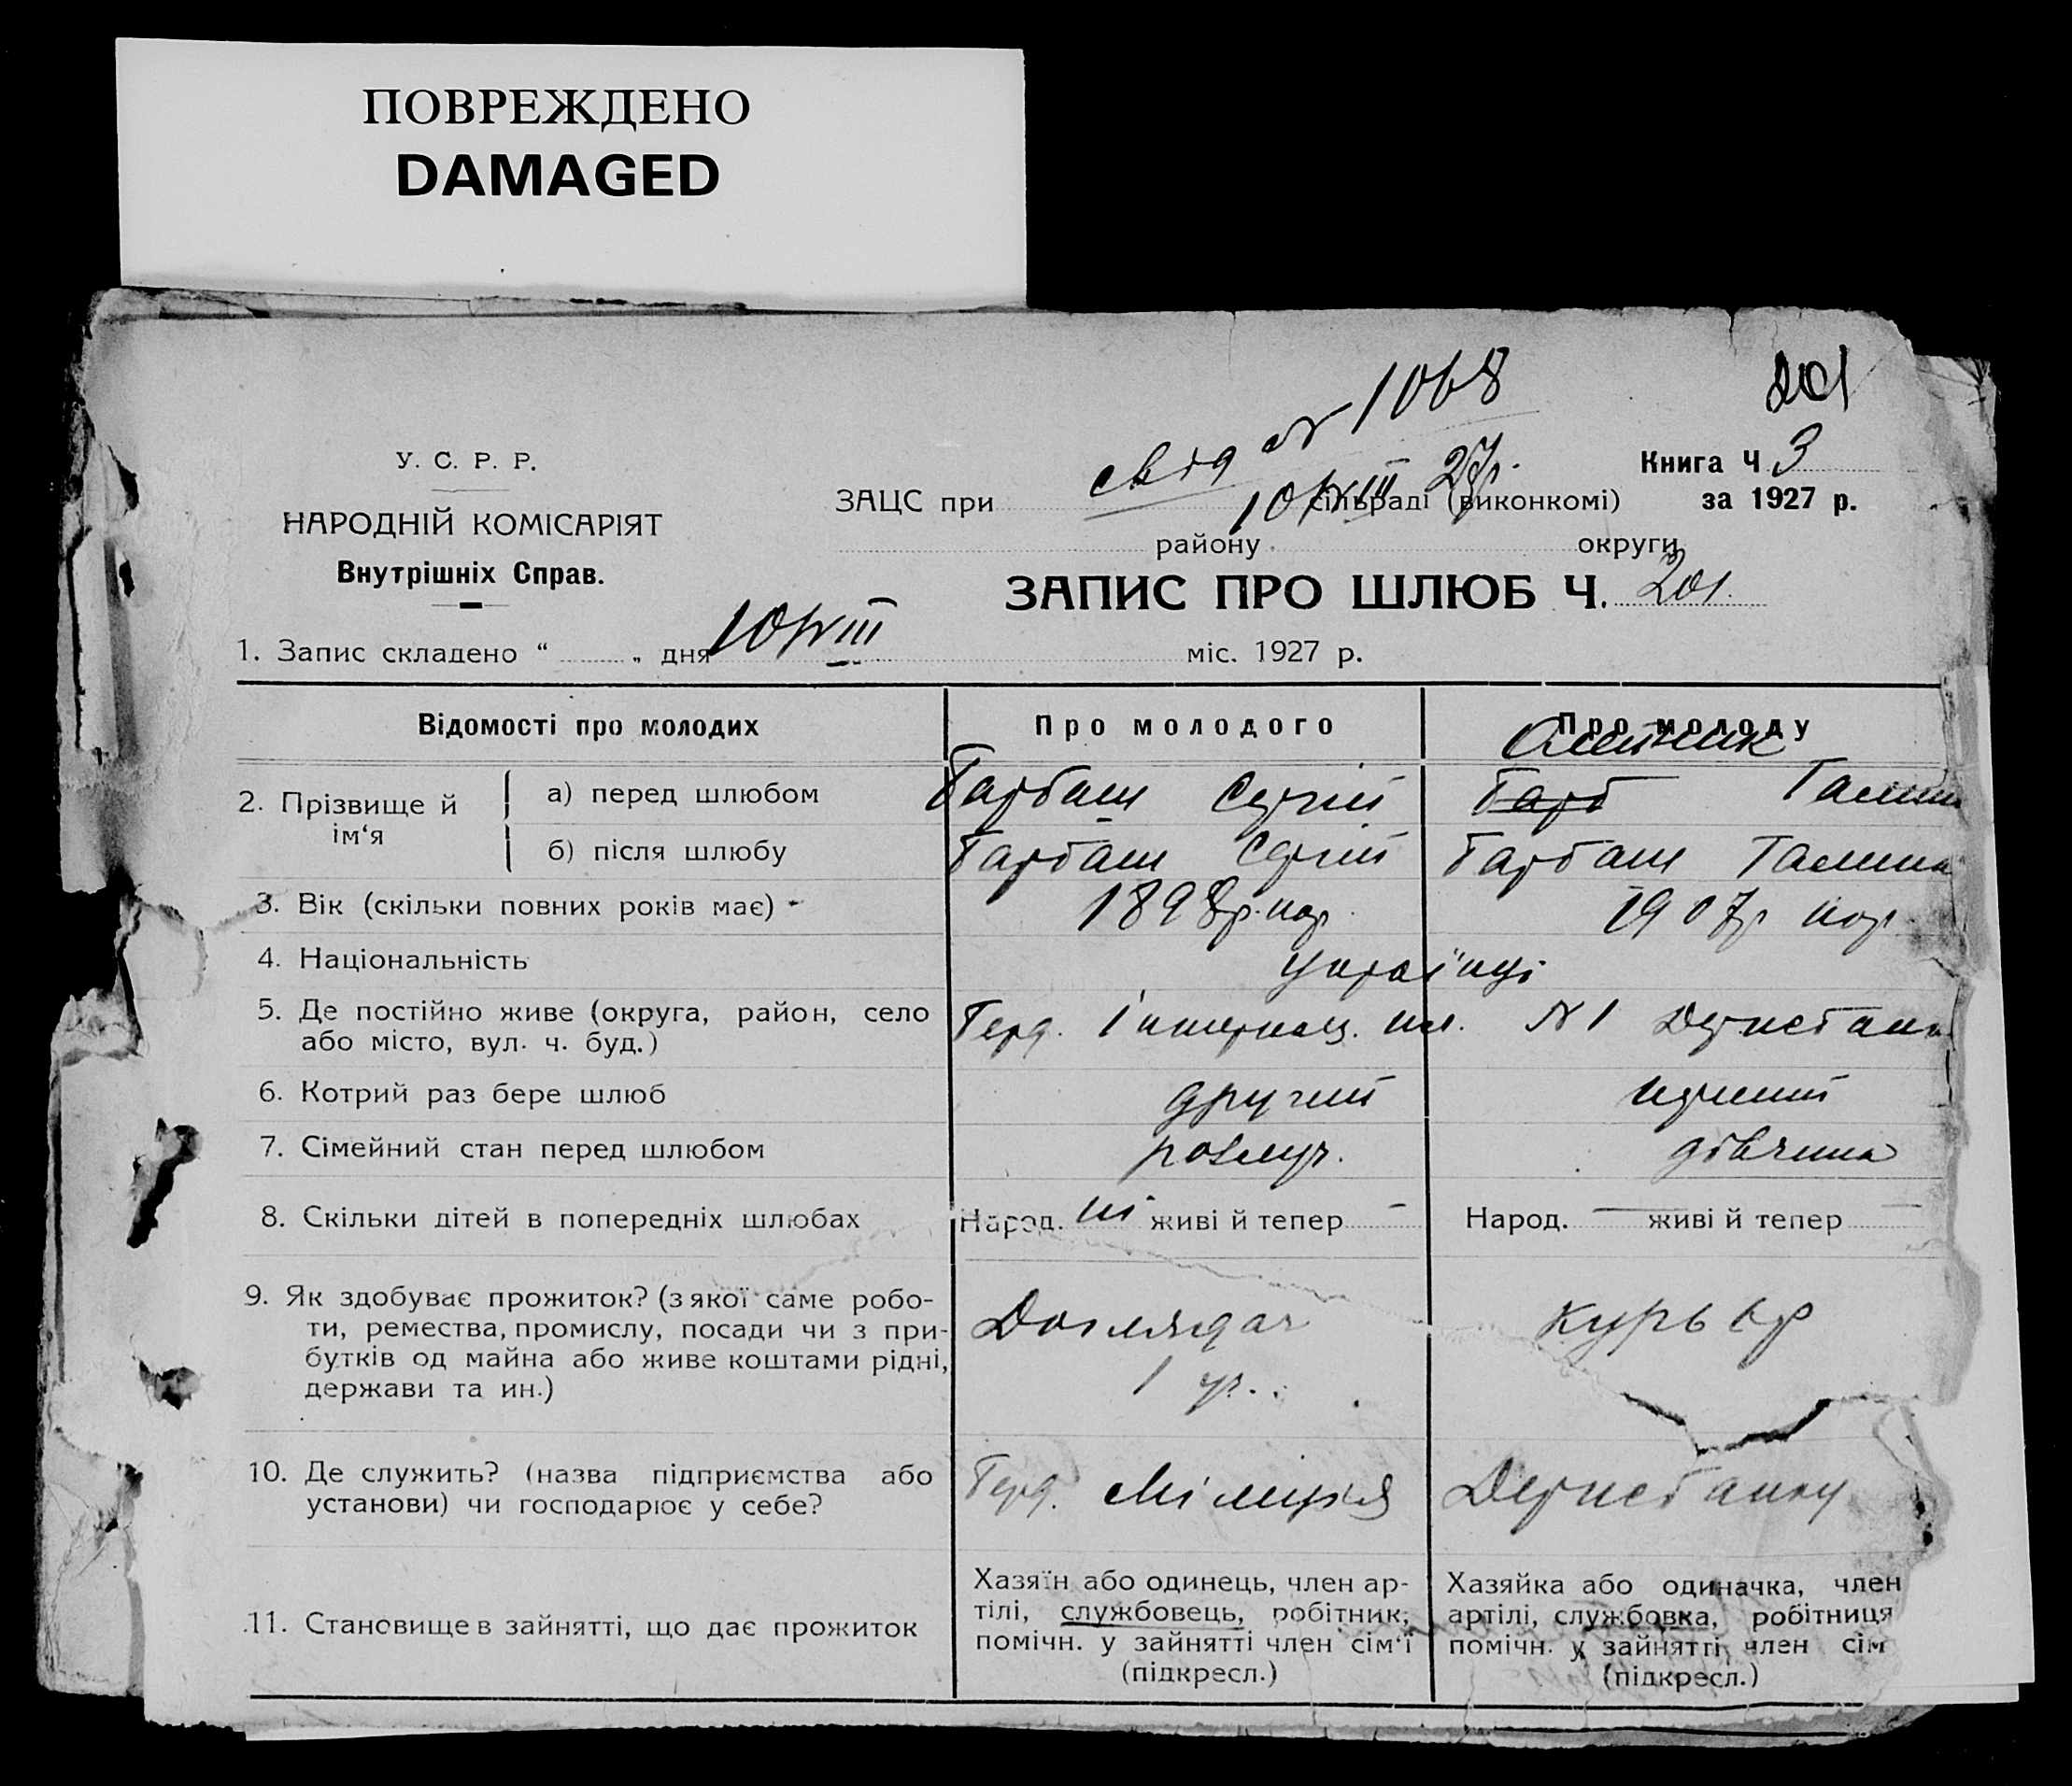 ПОВРЕЖДЕНО
DAMAGED
201
свід № 1068
10/VIII 27р.
У. С. Р. Р.
НАРОДНІЙ КОМІСАРІЯТ
Внутрішніх Справ.
Книга Ч 3
за 1927 р.
ЗАЦС при сільраді (виконкомі)
району округи
ЗАПИС ПРО ШЛЮБ Ч. 201.
1. Запис складено “ „ дня 10/VIII міс. 1927 р.
Відомості про молодих Про молодого Про молоду
2. Прізвище й ім‘я
а) перед шлюбом Гарбаш Сергій Гарб Галина
б) після шлюбу Гарбаш Сергій Гарбаш Галина
3. Вік (скільки повних років має) 1898р. нар. 1907р нар.
4. Національність українці
5. Де постійно живе (округа, район, село
або місто, вул. ч. буд.)
Інтернац. № 1
6. Котрий раз бере шлюб другий перший
7. Сімейний стан перед шлюбом розлуч. дівчина
8. Скільки дітей в попередніх шлюбах Народ. ні живі й тепер – Народ. — живі й тепер —
9. Як здобуває прожиток? (з якої саме робо-
ти, ремества, промислу, посади чи з при-
бутків од майна або живе коштами рідні,
держави та ин.)
Доглядач
курьєр
10. Де служить? (назва підприємства або
установи) чи господарює у себе?
Міліція
Держбанку
11. Становище в зайнятті, що дає прожиток
Хазяїн або одинець, член ар-
тілі, службовець, робітник,
помічн. у зайнятті член сім‘ї
(підкресл.)
Хазяйка або одиначка, член
артілі, службовка, робітниця
помічн. у зайнятті, член сім
(підкресл.)